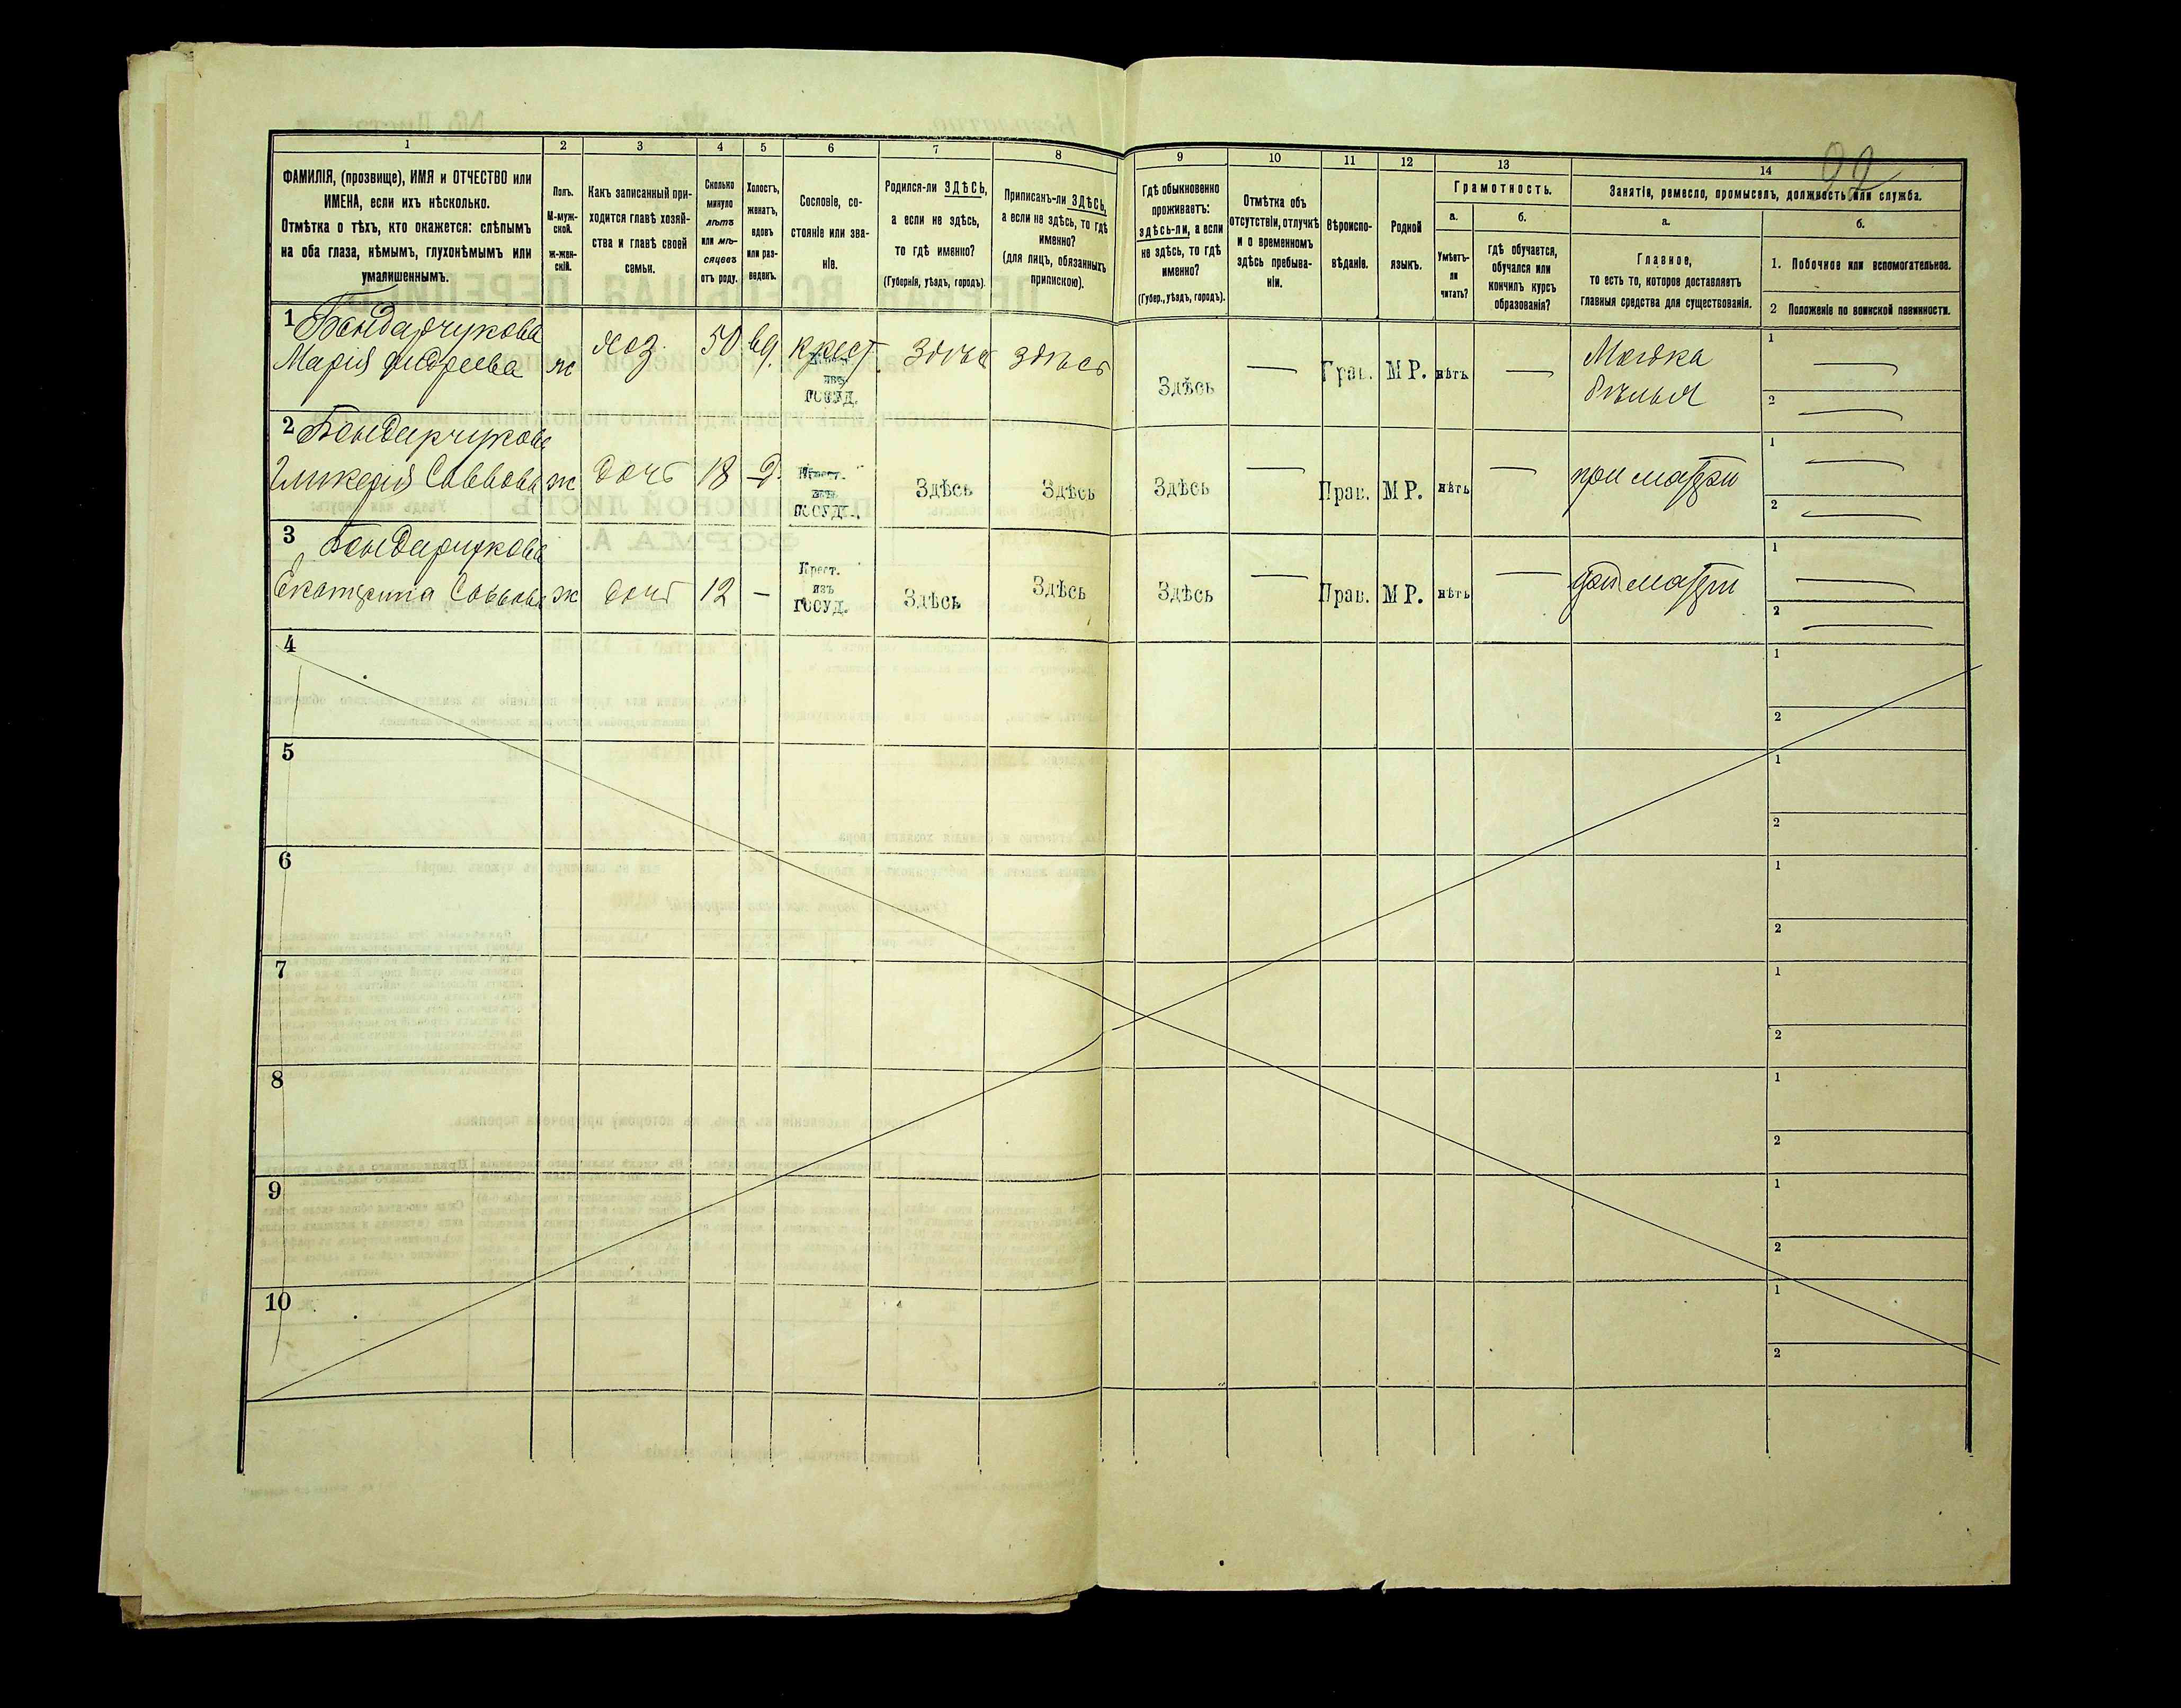 92
1 2 3 4 5 6 7 8 9 10 11 12 13 14
ФАМИЛІЯ, (прозвище), ИМЯ и ОТЧЕСТВО или
ИМЕНА, если ихъ нѣсколько.
Отмѣтка о тѣхъ, кто окажется: слѣпымъ
на оба глаза, нѣмымъ, глухонѣмымъ или
умалишеннымъ.
Полъ.
М-муж-
ской.
ж-жен-
скій.
Какъ записанный при-
ходится главѣ хозяй-
ства и главѣ своей
семьи.
Сколько
минуло
лѣтъ
или мѣ-
сяцевъ
отъ роду.
Холостъ,
женатъ,
вдовъ
или раз-
веденъ.
Сословіе, со-
стояніе или зва-
ніе.
Родился-ли ЗДѢСЬ,
а если не здѣсь,
то гдѣ именно?
(Губернія, уѣздъ, городъ).
Приписанъ-ли ЗДѢСЬ,
а если не здѣсь, то гдѣ
именно?
(для лицъ, обязанныхъ
припискою).
Гдѣ обыкновенно
проживаетъ:
здѣсь-ли, а если
не здѣсь, то гдѣ
именно?
(Губер., уѣздъ, городъ).
Отмѣтка объ
отсутствіи, отлучкѣ
и о временномъ
здѣсь пребыва-
ніи.
Вѣроиспо-
вѣданіе.
Родной
языкъ.
Грамотность.
а.
Умѣетъ-
ли
читать?
б.
Гдѣ обучается,
обучался или
кончилъ курсъ
образованія?
Занятіе, ремесло, промыселъ, должность или служба.
а.
Главное,
то есть то, которое доставляетъ
главныя средства для существованія.
б.
1. Побочное или вспомогательное.
2 Положеніе по воинской повинности.
1 Бондарчукова
Марія Андреева ж хоз. 50 вд. Крест здѣсь здѣсь Здѣсь — Прав. МР. нѣтъ — Мойка
изъ
ГОСУД.
бѣлья
1 —
2 —
2 Бондарчукова
Гликерія Саввова ж дочь 18 д. Крест. Здѣсь Здѣсь Здѣсь — Прав. МР. нѣтъ — при матери
изъ
ГОСУД.
1 —
2 —
3 Бондарчукова
Екатерина Саввова ж дочь 12 — Крест. Здѣсь Здѣсь Здѣсь — Прав. МР. нѣтъ — при матери
изъ
ГОСУД.
1 —
2 —
4
1
2
5
1
2
6
1
2
7
1
2
8
1
2
9
1
2
10
1
2